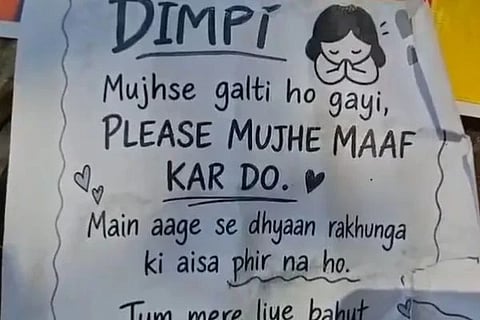 DIMPI
Mujhse galti ho gayi,
PLEASE MUJHE MAAF
KAR DO.
Main aage se dhyaan rakhunga
ki aisa phir na ho.
Tum mere liye bahut